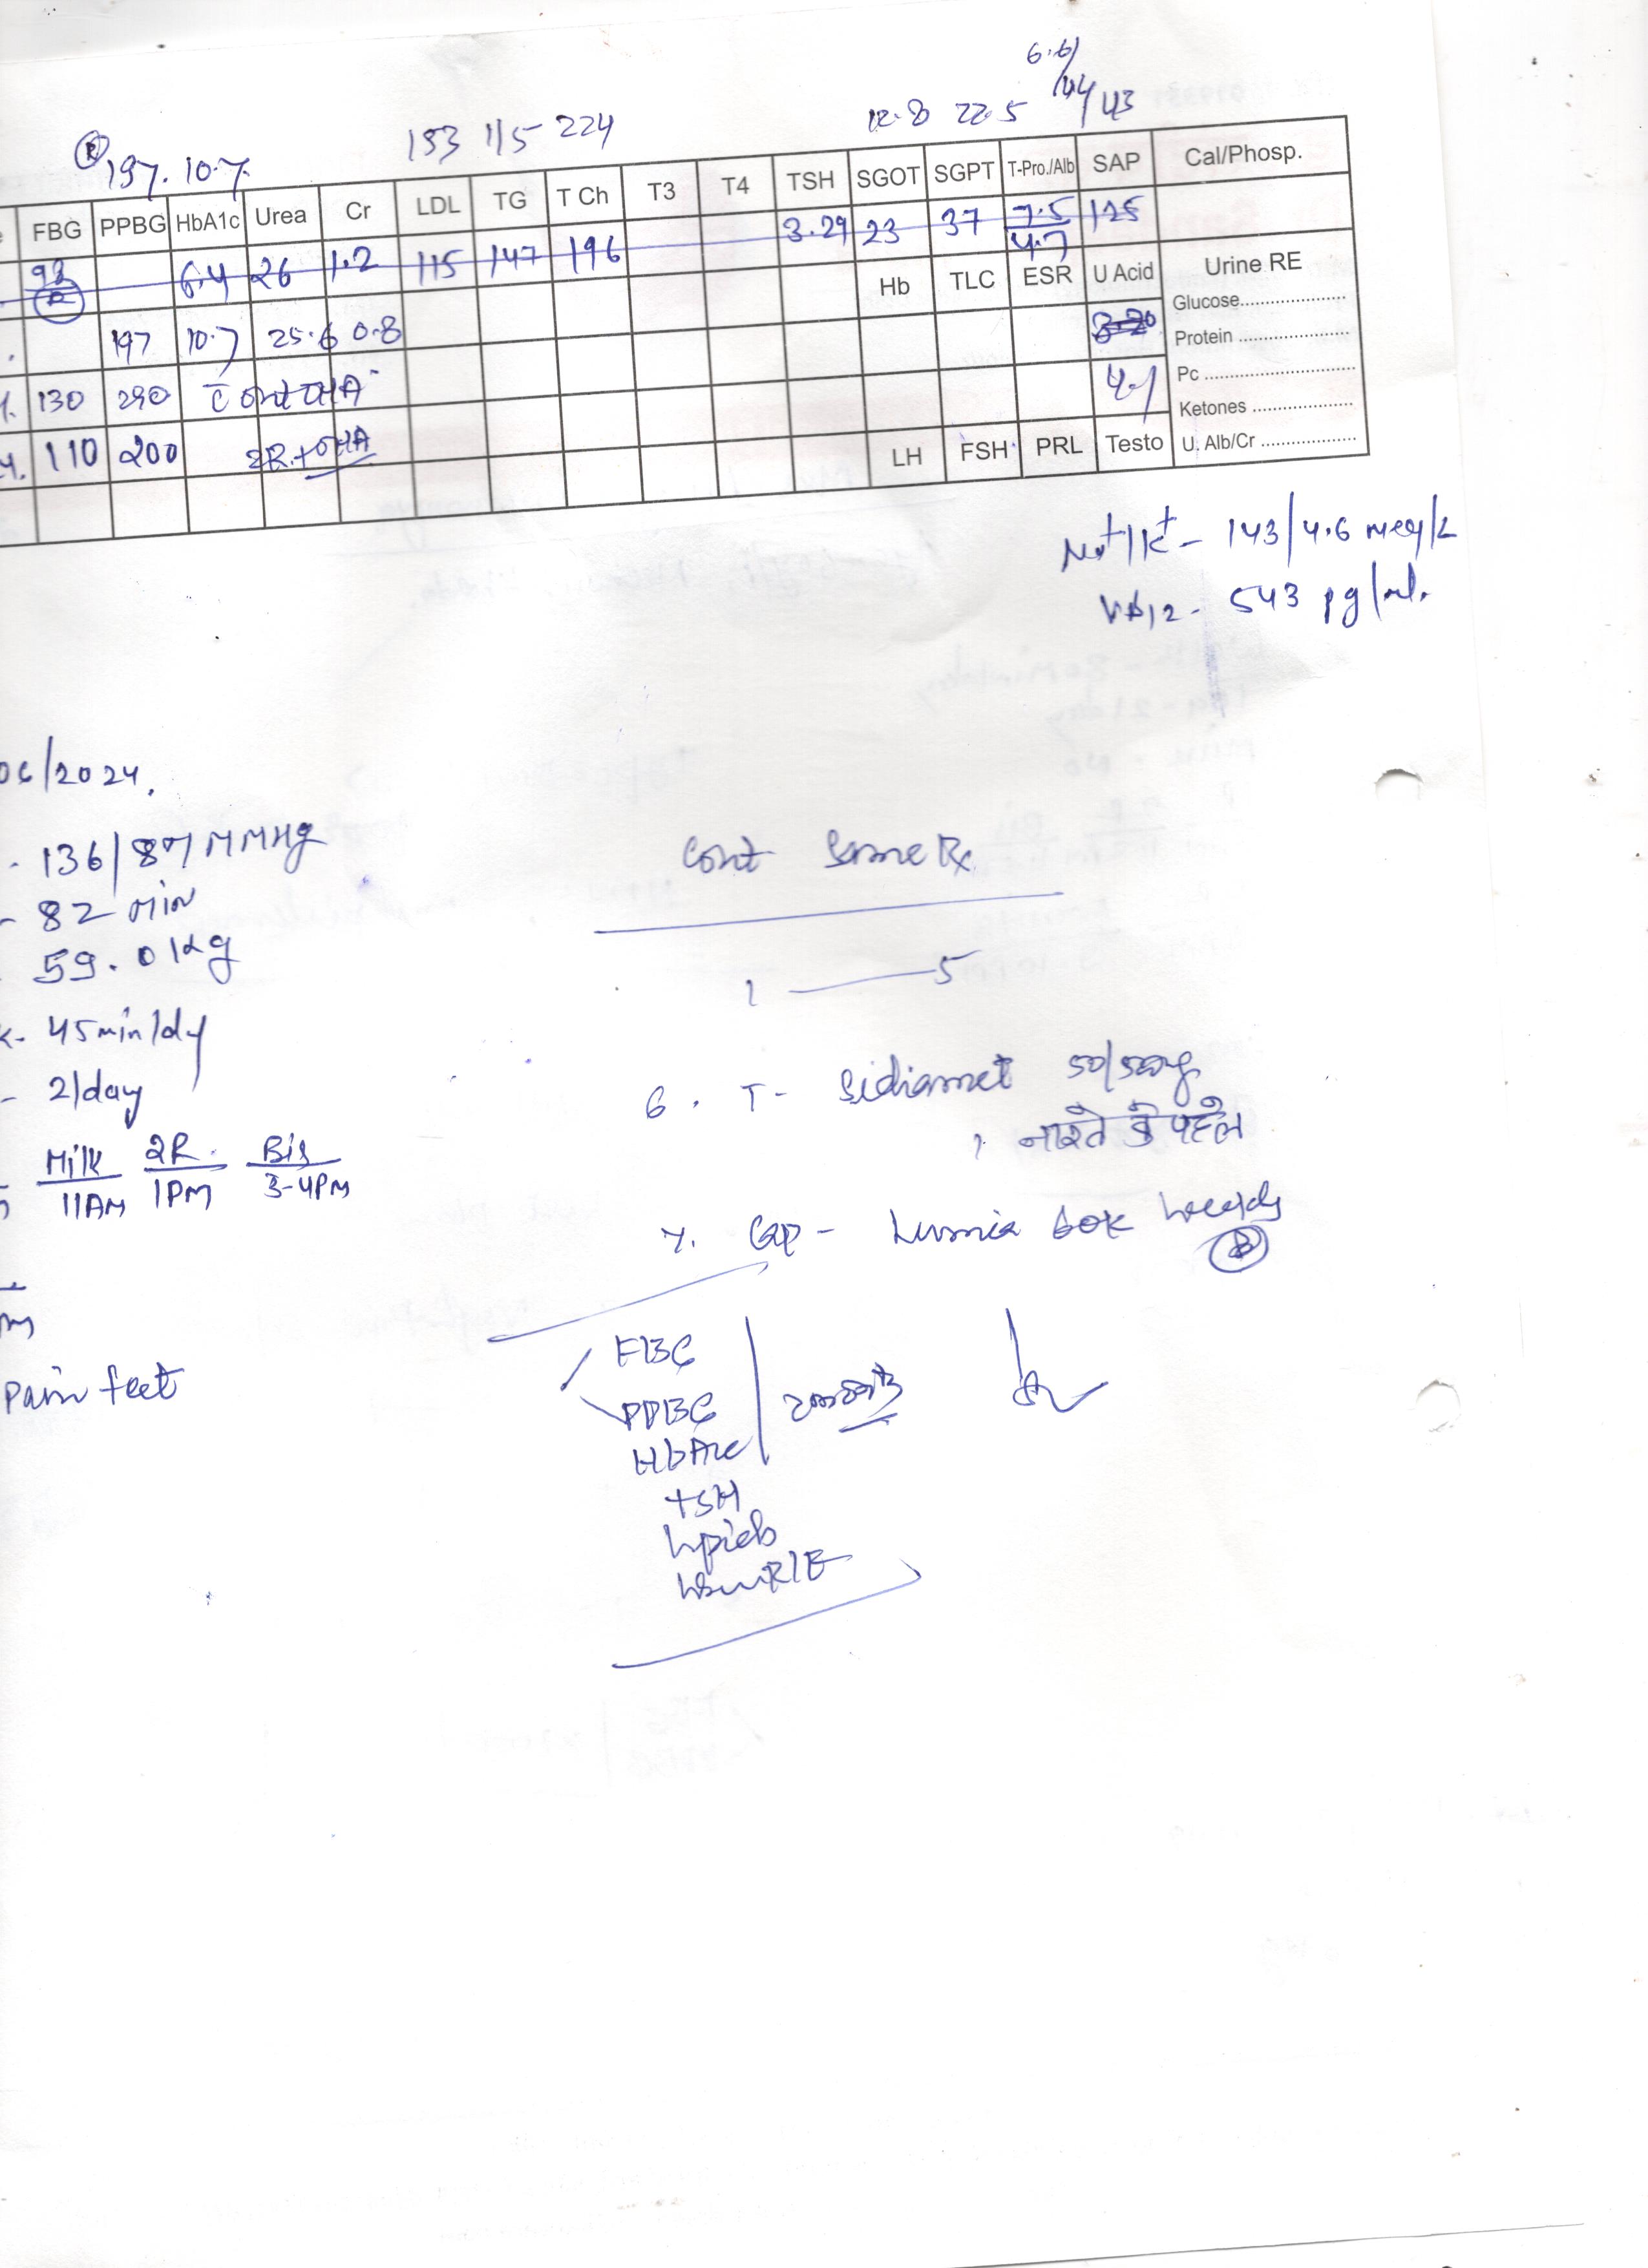 6.6/
4.4/43
197. 10.7
153 115 224
12.8 22.5
FBG PPBG HbA1c Urea Cr LDL TG T Ch T3 T4 TSH SGOT SGPT T-Pro./Alb SAP Cal/Phosp.
98 6.4 26 1.2 115 147 196 3.29 23 37 7.5/4.7 125
Hb TLC ESR U Acid Urine RE
Glucose....................
197 10.7 25.6 0.8
Protein ....................
130 290 Cont OHA
4.1
Pc ....................
Ketones ....................
110 200 2R + OHA
LH FSH PRL Testo U. Alb/Cr ....................
Na+/K+ - 143/4.6 meq/L
VB12 - 543 pg/ml.
06/2024.
- 136/87 MMHg
- 82 Min
59.0 kg
Cont Same Rx
1 — 5
- 45 min/dy
- 2/day
6. T- Sidiamet 50/500mg
1 नाश्ते के पहले
Milk 2R. Bis
11AM 1PM 3-4PM
7. Cap - 60K weekly
Pain feet
FBG
PPBG
HbA1c
TSH
Lipids